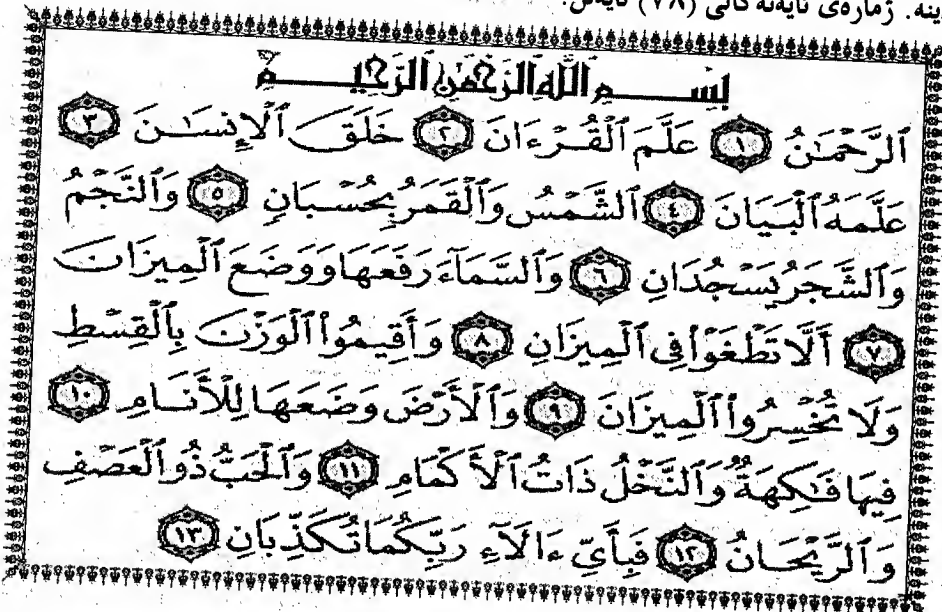 ینە. ژمارەی ئایەتەکانی (٧٨) ئایەتن.
بِسْمِ اللَّهِ الرَّحْمَٰنِ الرَّحِيمِ
ٱلرَّحْمَـٰنُ ١ عَلَّمَ ٱلْقُرْءَانَ ٢ خَلَقَ ٱلْإِنسَـٰنَ ٣
عَلَّمَهُ ٱلْبَيَانَ ٤ ٱلشَّمْسُ وَٱلْقَمَرُ بِحُسْبَانٍ ٥ وَٱلنَّجْمُ
وَٱلشَّجَرُ يَسْجُدَانِ ٦ وَٱلسَّمَآءَ رَفَعَهَا وَوَضَعَ ٱلْمِيزَانَ
٧ أَلَّا تَطْغَوْا۟ فِى ٱلْمِيزَانِ ٨ وَأَقِيمُوا۟ ٱلْوَزْنَ بِٱلْقِسْطِ
وَلَا تُخْسِرُوا۟ ٱلْمِيزَانَ ٩ وَٱلْأَرْضَ وَضَعَهَا لِلْأَنَامِ ١٠
فِيهَا فَـٰكِهَةٌ وَٱلنَّخْلُ ذَاتُ ٱلْأَكْمَامِ ١١ وَٱلْحَبُّ ذُو ٱلْعَصْفِ
وَٱلرَّيْحَانُ ١٢ فَبِأَىِّ ءَالَآءِ رَبِّكُمَا تُكَذِّبَانِ ١٣